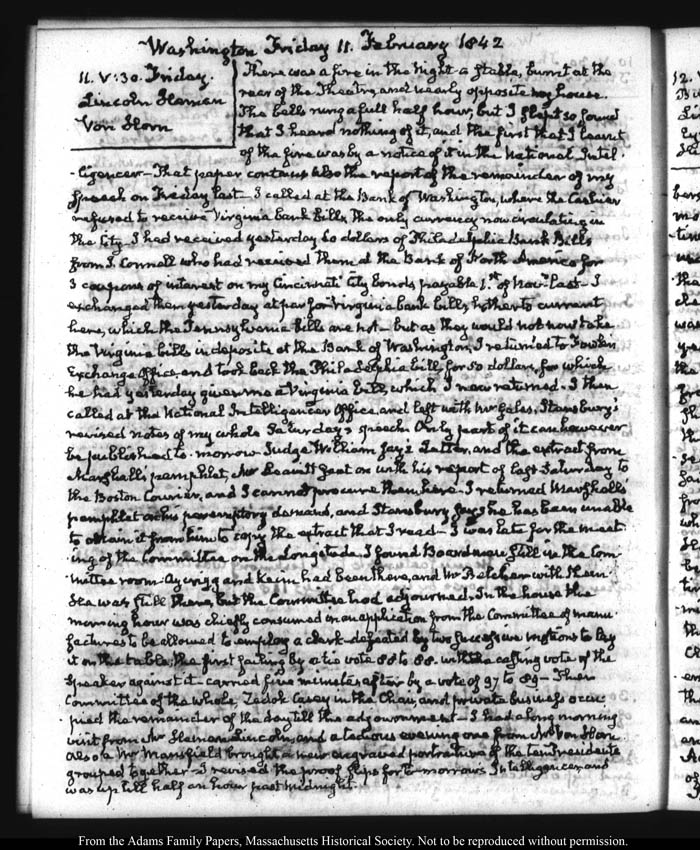 Washington Friday 11. February 1842
11. V:30. Friday.
Lincoln Heman
Van Horn
There was a fire in the Night a stable, burnt at the
rear of the Theatre, and nearly opposite my house.
The bells rung a full half hour, but I slept so sound
that I heard nothing of it, and the first that I learnt
of the fire was by a notice of it in the National Intel-
ligencer— That paper contains also the report of the remainder of my
speech on last— I called at the Bank of Washington, where the Cashier
refused to receive Virginia bank bills, the only currency now circulating in
the City. I had received yesterday 60 dollars of Philadelphia Bank Bills
from J. Connell who had received them at the Bank of North America for
3 coupons of interest on my Cincinnati City bonds payable 1.st of Nov.r last— I
exchanged them yesterday at par for Virginia bank bills, hitherto current
here, which the Pennsylvania bills are not— but as they would not now take
the Virginia bills in deposite at the Bank of Washington, I returned to
Exchange Office, and took back the Philadelphia bill for 50 dollars, for which
he had yesterday given me a Virginia bill, which I now returned. I then
called at the National Intelligencer Office, and left with Mr Gales, Stansbury's
revised notes of my whole Saturday's speech. Only part of it can however
be published to-morrow. Judge William Jay's Letter, and the extract from
Marshall's pamphlet, Mr Leavitt sent on with his report of last Saturday to
the Boston Courier, and I cannot procure them here. I returned Marshall's
pamphlet on his peremptory demand, and Stansbury says he has been unable
to obtain it from him to copy the extract that I read— I was late for the meet-
ing of the Committee on the I found Boardman still in the Com-
mittee room. Aycrigg and Keim had been there, and Mr Belcher with them
was still there, but the Committee had adjourned. In the house the
morning hour was chiefly consumed in an application from the Committee of manu-
factures to be allowed to employ a clerk— defeated by two successive motions to lay
it on the table; the first failing by a tie vote 88 to 88. with the casting vote of the
Speaker against it— carried five minutes after by a vote of 97 to 89— Then
Committee of the whole, Zadok Casey in the Chair, and private business occu-
pied the remainder of the day till the adjournment— I had a long morning
visit from Mr Heman Lincoln, and a tedious evening one from Mr Van Horn.
Also a Mr Mansfield brought a new engraved portraiture of the ten Presidents
grouped together— I revised the proof slips for to-morrow's Intelligencer, and
was up till half an hour past midnight.
From the Adams Family Papers, Massachusetts Historical Society. Not to be reproduced without permission.